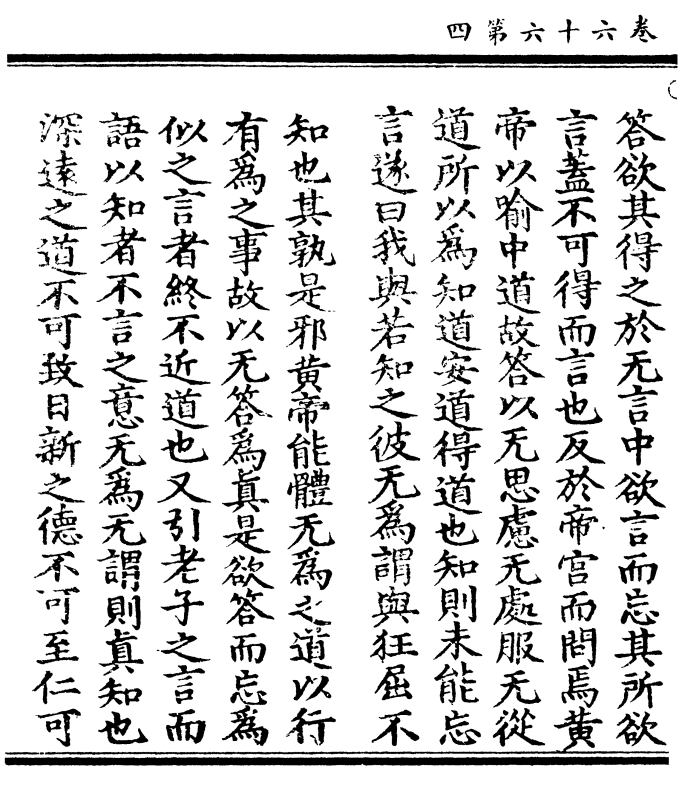 卷六十六第四
答欲其得之於无言中欲言而忘其所欲
言蓋不可得而言也反於帝宮而問焉黃
帝以喻中道故答以无思慮无處服无從
道所以爲知道安道得道也知則未能忘
言遂曰我與若知之彼无爲謂與狂屈不
知也其孰是邪黃帝能體无爲之道以行
有爲之事故以无答爲眞是欲答而忘爲
似之言者終不近道也又引老子之言而
語以知者不言之意无爲无謂則眞知也
深遠之道不可致日新之德不可至仁可